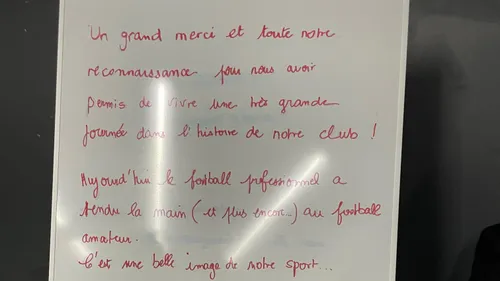 Un grand merci et toute notre
reconnaissance pour nous avoir
permis de vivre une très grande
journée dans l'histoire de notre club !
Aujourd'hui le football professionnel a
tendu la main (et plus encore...) au football
amateur.
C'est une belle image de notre sport...